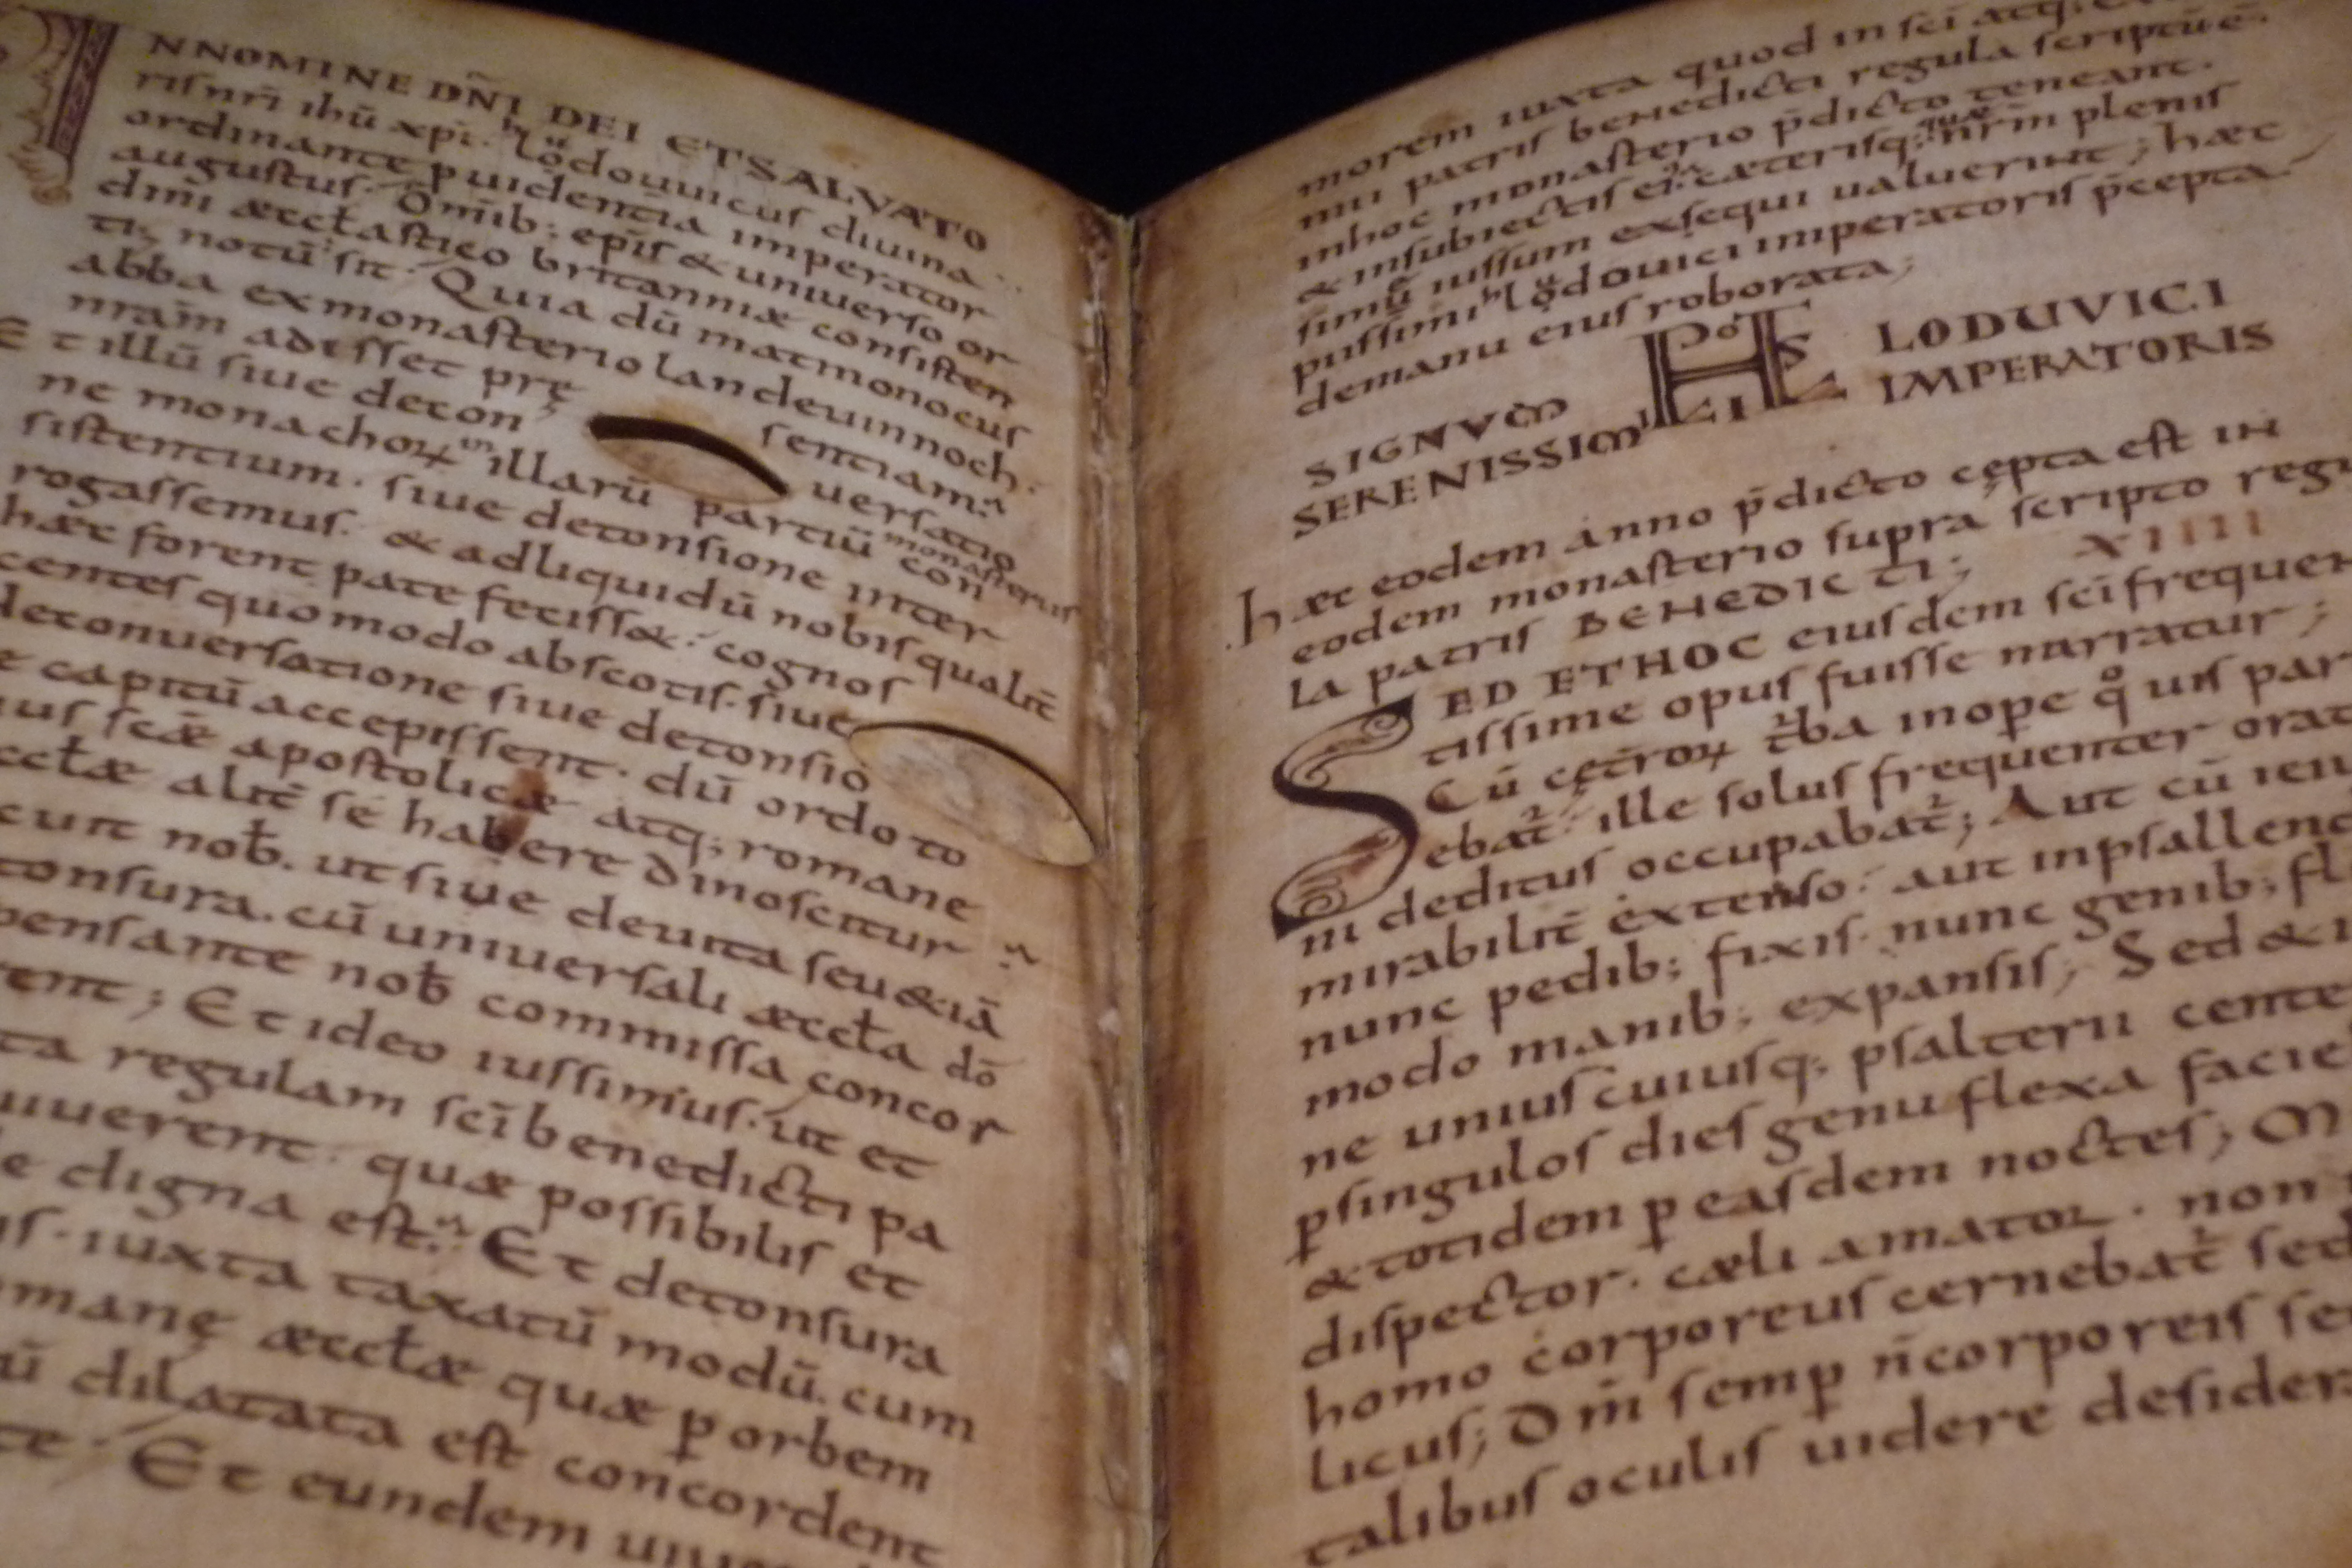 NNOMINE DÑI DEI ET SALVATO
riſ nrī ihū xpī. hlodouuicuſ diuina
ordinante puidentia imperator
auguſtuſ. Om̄ib; epīſ & uniuerſo or
dini æccłaſtico britanniæ conſiſten
ti; notū ſit. Quia dū matmonocuſ
abba ex monaſterio landeuinnoch.
nr̄am adiſſet pręſentiam.
Et illū ſiue de conuerſatio
ne monachoꝝ illarū partiū in monaſteriiſ con
ſiſtentium. ſiue de tonſione inter
rogaſſemuſ. & ad liquidū nobiſ qualit̄
hæc forent pate feciſſ&. cognoſ
centeſ quomodo ab ſcotiſ. ſiue
de conuerſatione ſiue de tonſio
ne capitū accepiſſent. dū ordo to
iuſ ſcǣ apoſtolicæ atq; romane
æccłæ alit̄ ſe habere dinoſcitur
cuit nob̄. ut ſiue de uita ſeu &iā
tonſura. cū uniuerſali æccła dō
penſante nob̄ commiſſa concor
rent; Et ideo iuſſimuſ. ut et
ta regulam ſcī benedicti pa
uiuerent. quæ poſſibiliſ et
e digna eſt. Et de tonſura
iſ. iuxta taxatū modū. cum
manę æccłæ quæ ꝑ orbem
ū dilatata eſt concordent
te. Et eundem uiue
morem iuxta quod in ſcī atq;
mi patriſ benedicti regula ſcriptū ē.
in hoc monaſterio p̄dicto teneant.
& in ſubiectiſ ei. cæteriſq; quæ nr̄m pleniſ
ſimū iuſſum exſequi ualuerint; hæc
piiſſimi hlodouici imperatoriſ p̄cepta
de manu eiuſ roborata;
SIGNVM HLODUVICI
SERENISSIMI IMPERATORIS
hæc eodem anno p̄dicto cępta eſt in
eodem monaſterio ſupra ſcripto regu
la patriſ BENEDICTI; XIIII
SED ET HOC eiuſdem ſcī frequen
tiſſime opuſ fuiſſe narratur;
Cū cętroꝝ t̄ba inope qͦ uiſ par
cebat̄. ille ſoluſ frequenter orat
ni deditus occupabat̄; Aut cū ien
mirabilit̄ extenſo. aut inpſallend
nunc pedib; fixiſ. nunc genib; fl
modo manib; expanſiſ; Sed & i
ne uniuſ cuiuſq; pſalterii cente
ꝑ singuloſ dieſ genu flexa facie
& totidem ꝑ eaſdem nocteſ; M
diſpector. cæli amator. non
homo corporeuſ cernebat̄ ſed
licuſ; Dm̄ ſemꝑ n̄ corporeiſ ſe
talibuſ oculiſ uidere deſider